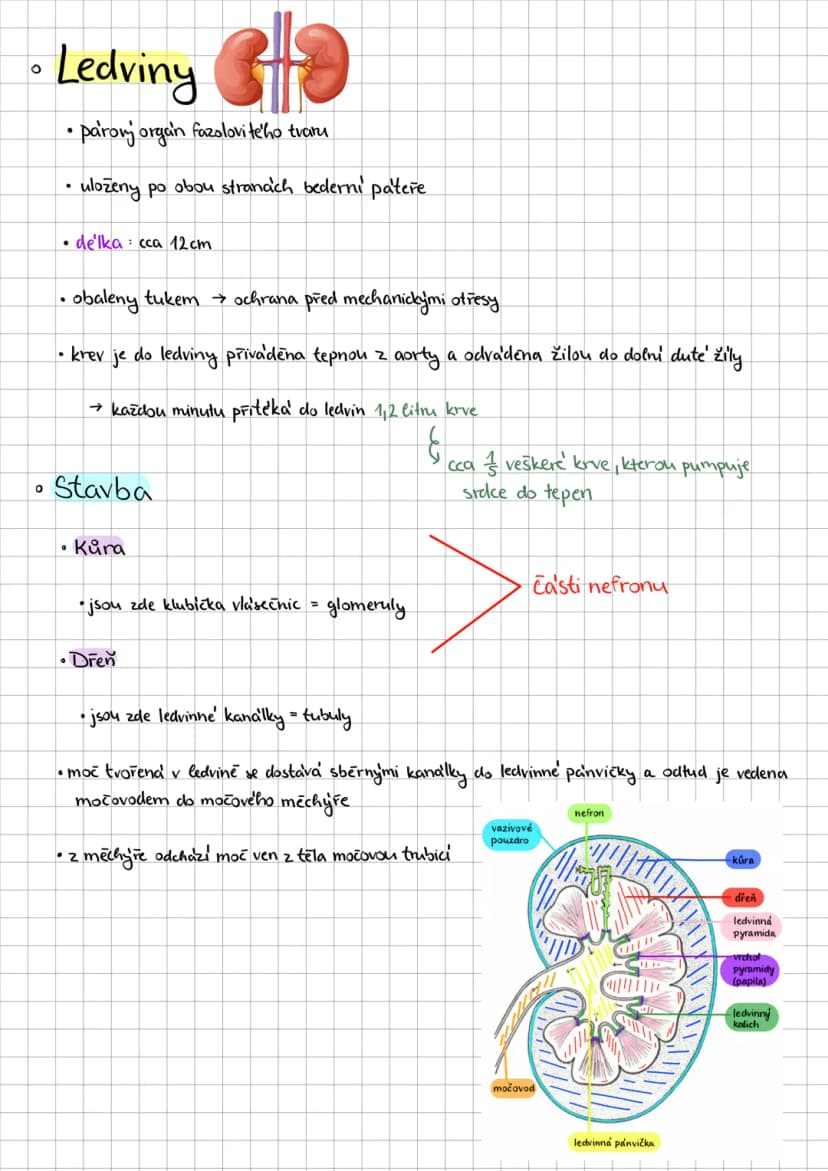 Ledviny
• párový orgán fazolovitého tvaru
• uloženy po obou stranách bederní páteře
• délka : cca 12cm
• obaleny tukem → ochrana před mechanickými otřesy
• krev je do ledviny přiváděna tepnou z aorty a odváděna žilou do dolní duté žíly
→ každou minutu přitéká do ledvin 1,2 litru krve
cca 1/5 veškeré krve, kterou pumpuje
srdce do tepen
Stavba
• Kůra
• jsou zde klubíčka vlásečnic = glomeruly
části nefronu
• Dřeň
• jsou zde ledvinné kanálky = tubuly
• moč tvořená v ledvině se dostává sběrnými kanálky do ledvinné pánvičky a odtud je vedena
močovodem do močového měchýře
• z měchýře odchází moč ven z těla močovou trubicí
nefron
vazivové
pouzdro
kůra
dřeň
ledvinná
pyramida
vrchol
pyramidy
(papila)
ledvinný
kalich
močovod
ledvinná pánvička